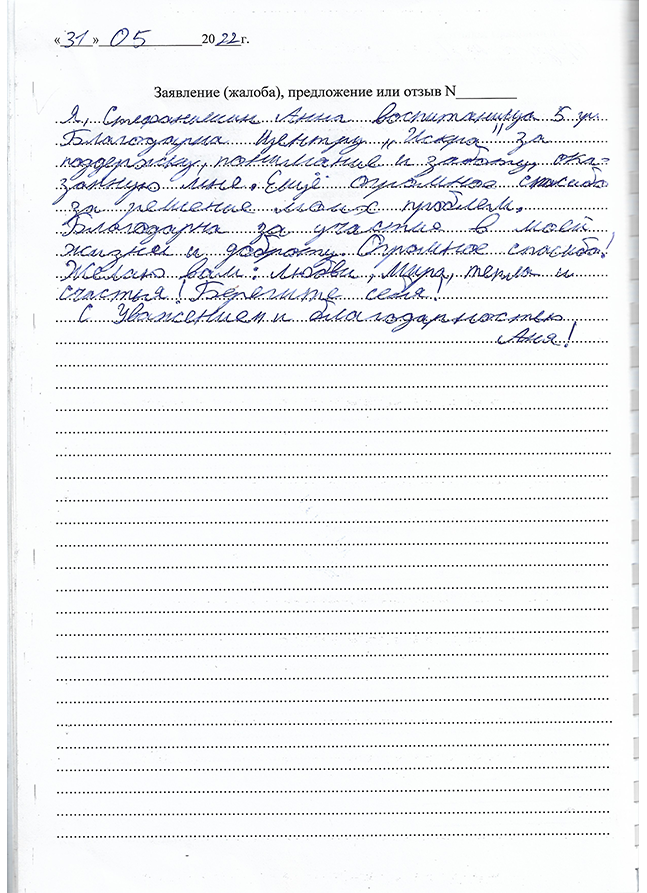 «31» 05 2022 г.
Заявление (жалоба), предложение или отзыв N________
Я, Стефанишин Анна воспитанница 5 гр.
Благодарна Центру „Искра" за
поддержку, понимание и заботу, ока-
занную мне. Ещё огромное спасибо
за решение моих проблем.
Благодарна за участие в моей
жизни и доброту. Огромное спасибо!
Желаю вам: любви, мира, тепла и
счастья! Берегите себя!
С Уважением и благодарностью
Аня!